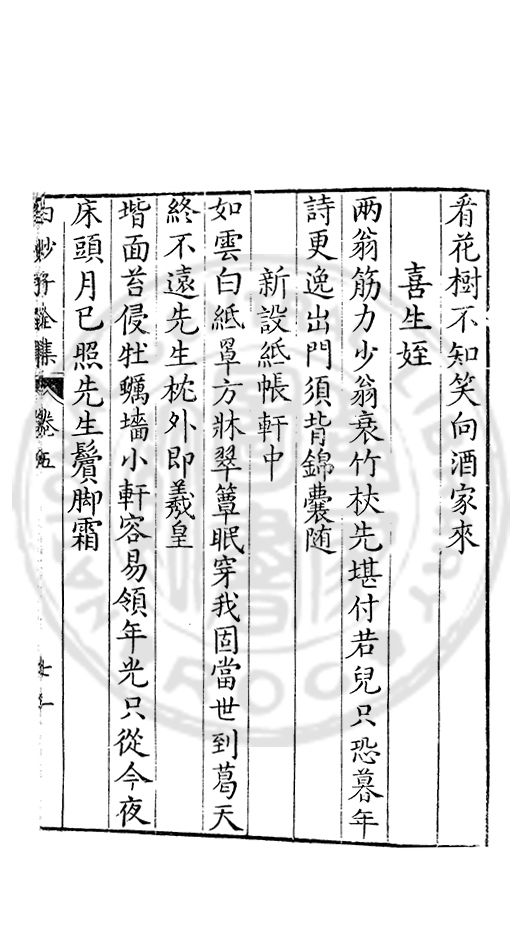 看花樹不知笑向酒家來
喜生姪
兩翁筋力少翁衰竹杖先堪付若兒只恐暮年
詩更逸出門須背錦囊随
新設紙帳軒中
如雲白紙罩方牀翠簟眠穿我固當世到葛天
終不遠先生枕外即羲皇
堦面苔侵牡蠣墻小軒容易領年光只從今夜
床頭月已照先生鬢脚霜
白沙子全集 卷五